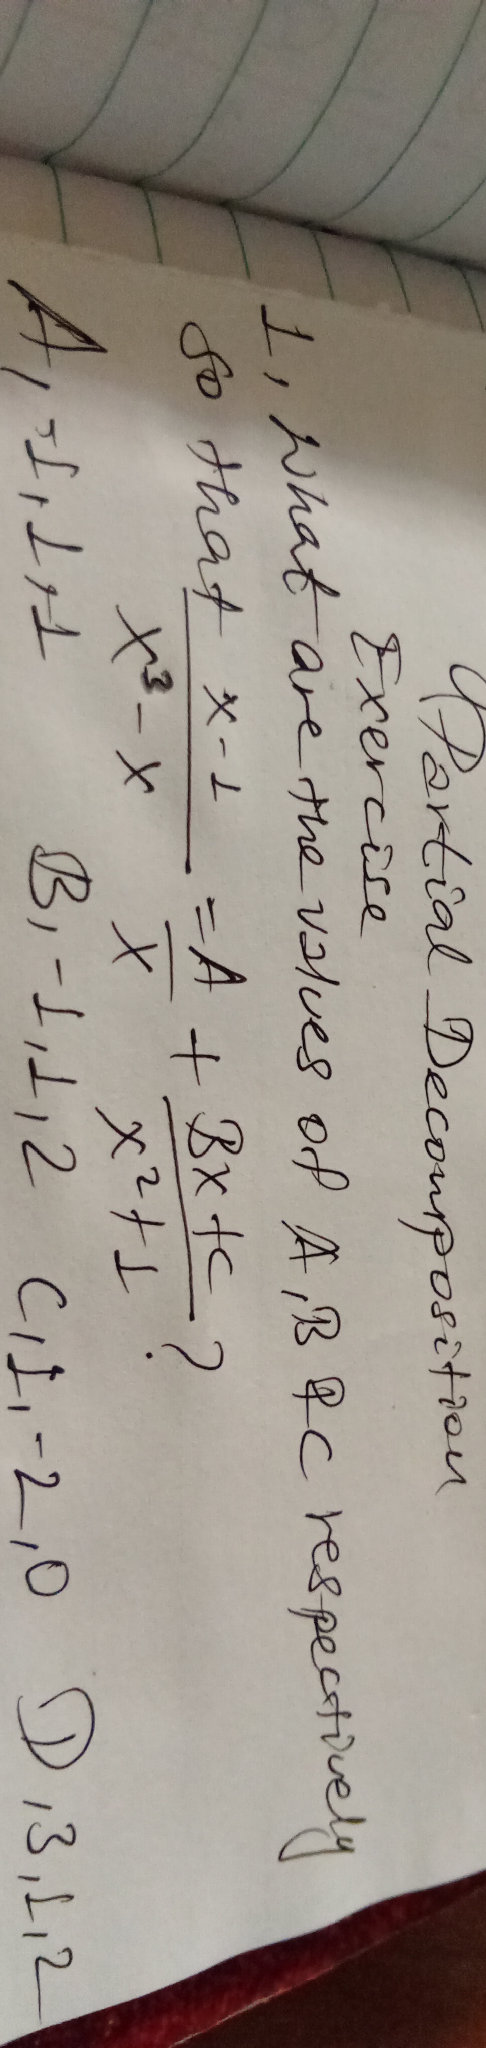 Partial Decomposition
Exercise
1, What are the values of A, B & C respectively
so that x-1 / x³-x = A/x + Bx+c / x²+1 ?
A, -1, 1, 1 B, -1, 1, 2 C, 1, -2, 0 D, 3, 1, 2